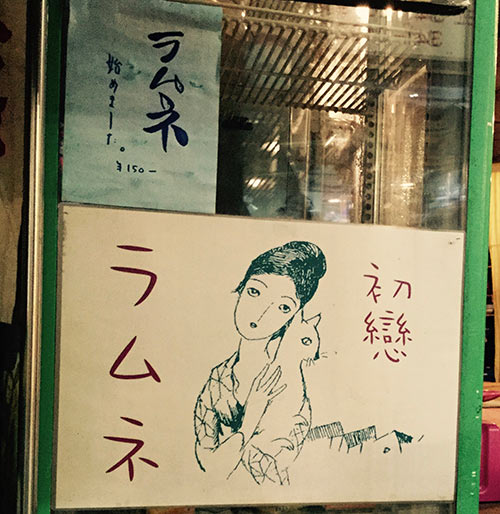 ラムネ
始めました。
¥150-
初戀
ラムネ